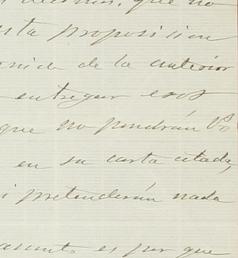 que no
esta proposicion
de la anterior
entregar esos
que no pondrán V
en su carta citada,
i pretenderán nada
asunto es por que